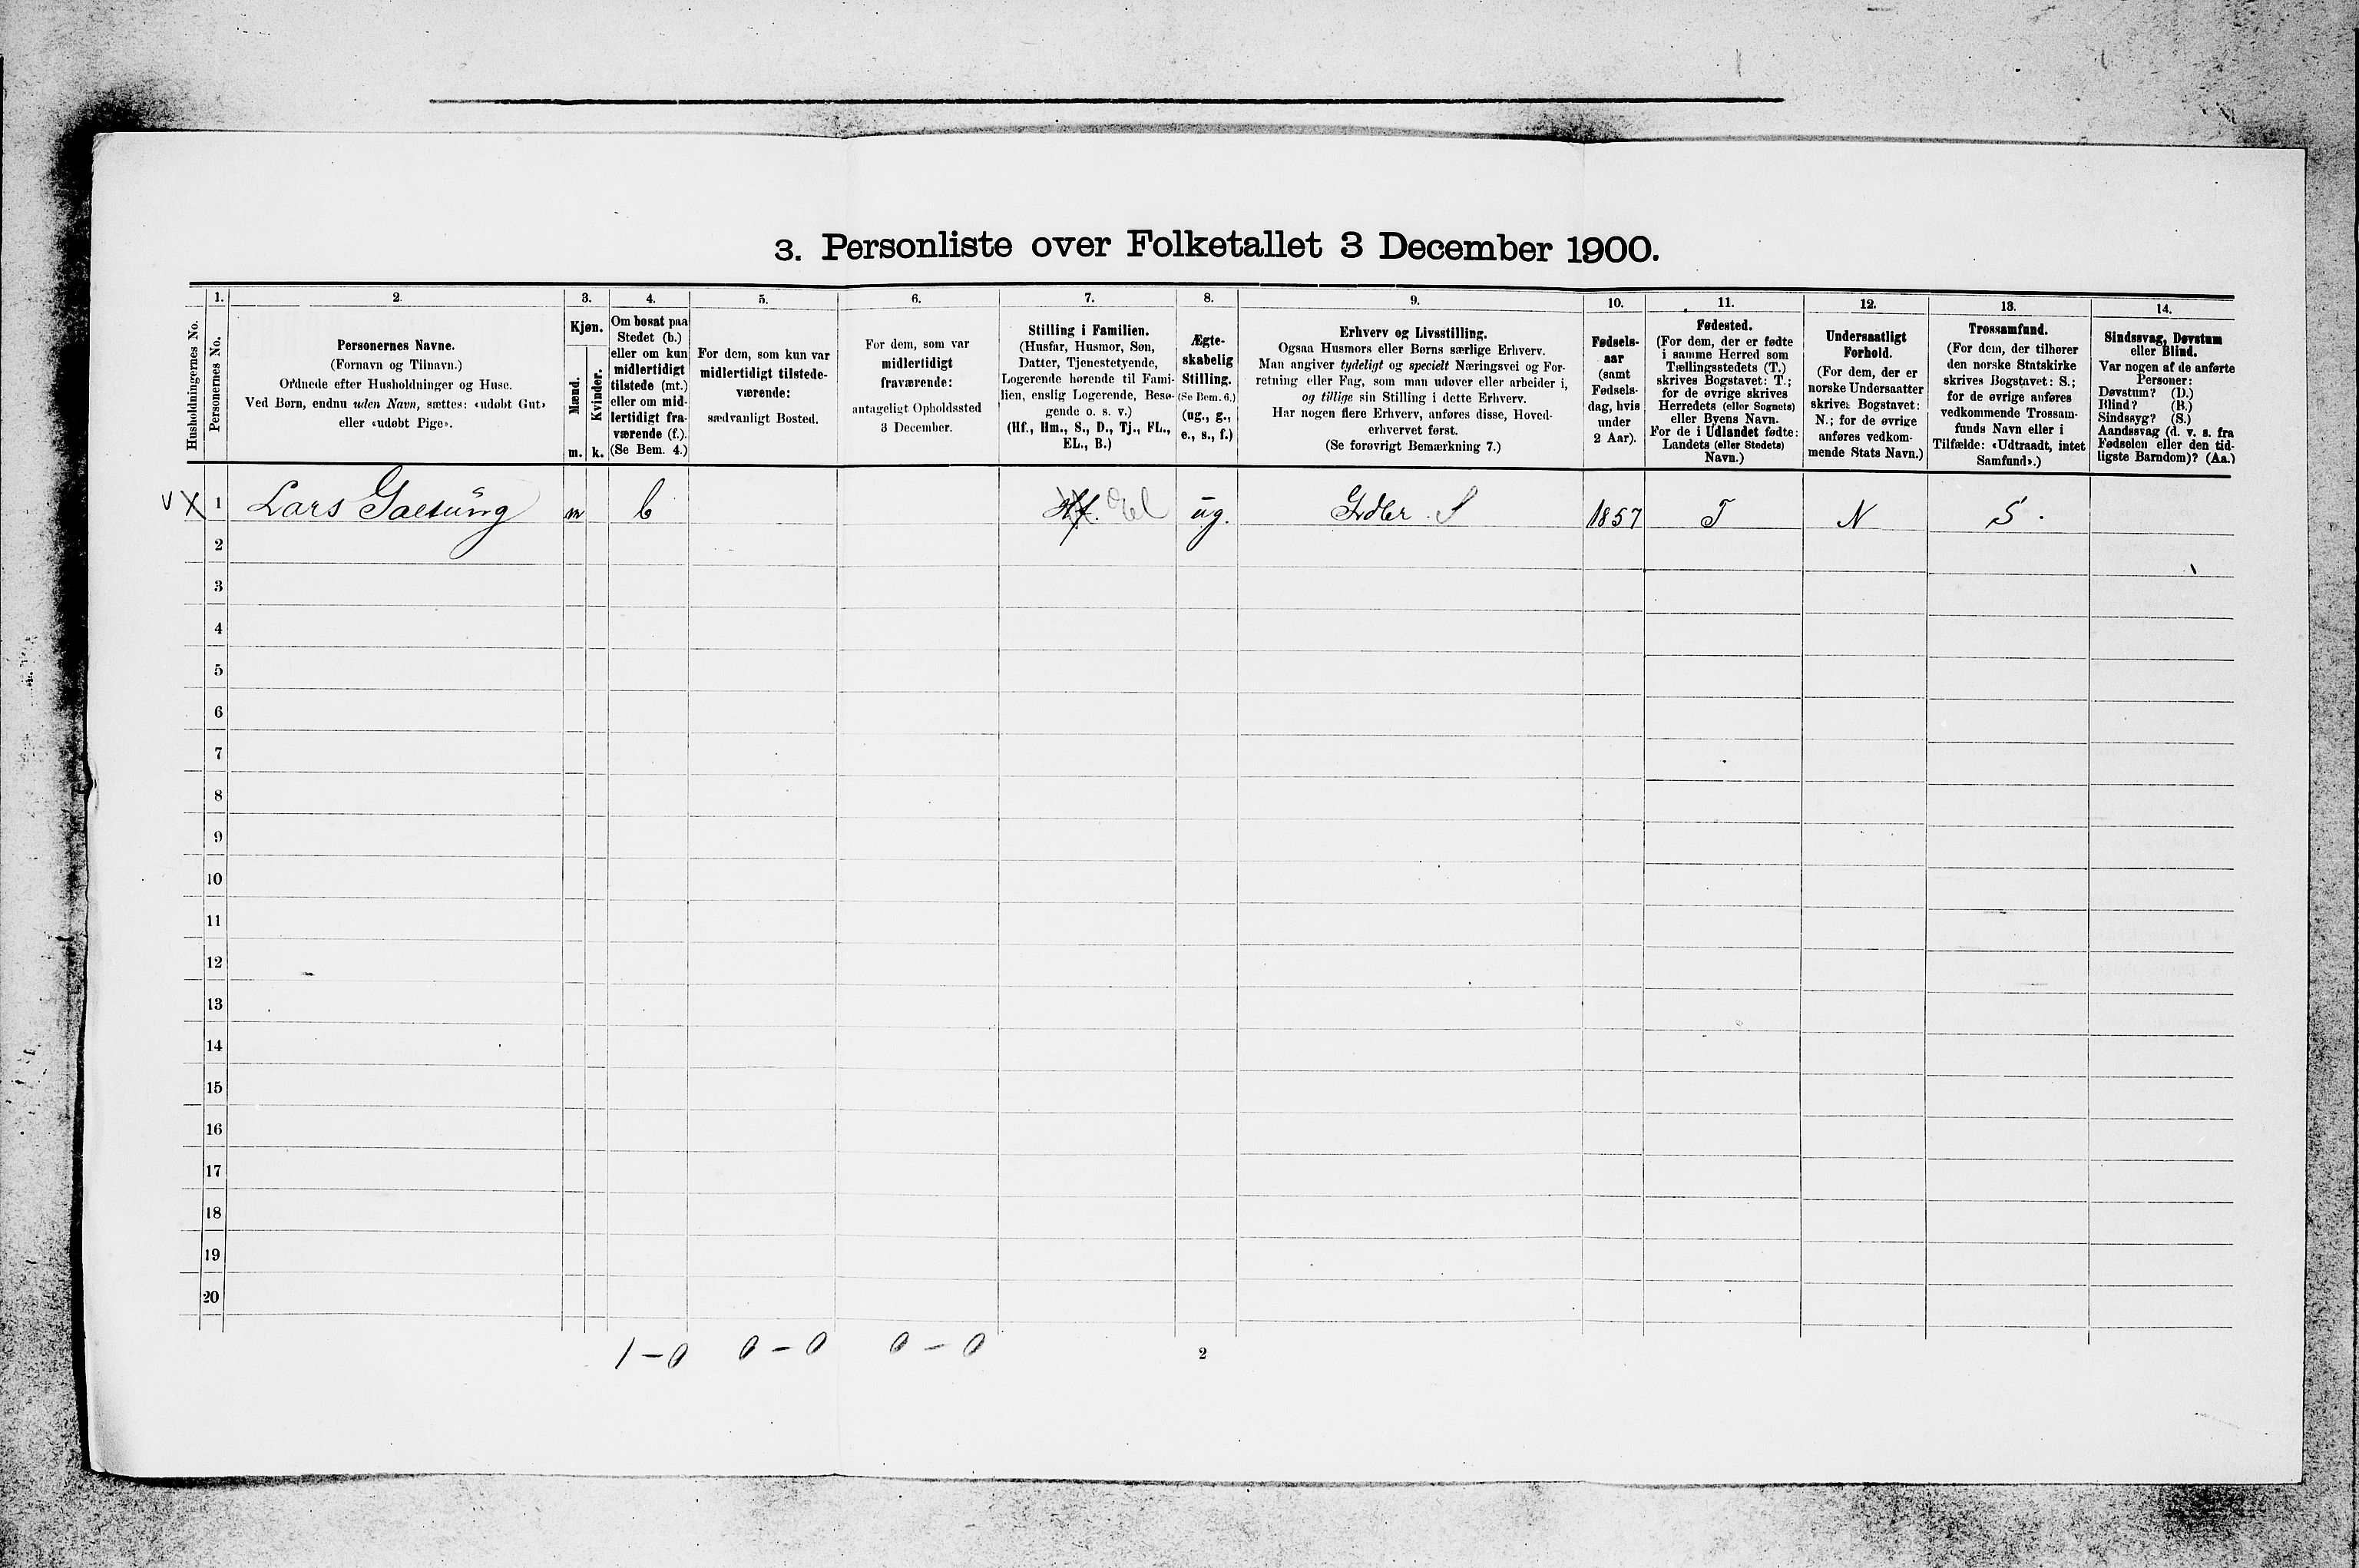 3. Personliste over Folketallet 3 December 1900.
1. 2. 3. 4. 5. 6. 7. 8. 9. 10. 11. 12. 13. 14.
Husholdningernes No.
Personernes No.
Personernes Navne.
(Fornavn og Tilnavn.)
Ordnede efter Husholdninger og Huse.
Ved Børn, endnu uden Navn, sættes: «udøbt Gut»
eller «udøbt Pige».
Kjøn.
Mænd.
Kvinder.
m. k.
Om bosat paa
Stedet (b.)
eller om kun
midlertidigt
tilstede (mt.)
eller om mid-
lertidigt fra-
værende (f.).
(Se Bem. 4.)
For dem, som kun var
midlertidigt tilstede-
værende:
sædvanligt Bosted.
For dem, som var
midlertidigt
fraværende:
antageligt Opholdssted
3 December.
Stilling i Familien.
(Husfar, Husmor, Søn,
Datter, Tjenestetyende,
Logerende hørende til Fami-
lien, enslig Logerende, Besø-
gende o. s. v.)
(Hf., Hm., S., D., Tj., FL.,
EL., B.)
Ægte-
skabelig
Stilling.
(Se Bem. 6.)
(ug., g.,
e., s., f.)
Erhverv og Livsstilling.
Ogsaa Husmors eller Børns særlige Erhverv.
Man angiver tydeligt og specielt Næringsvei og For-
retning eller Fag, som man udøver eller arbeider i,
og tillige sin Stilling i dette Erhverv.
Har nogen flere Erhverv, anføres disse, Hoved-
erhvervet først.
(Se forøvrigt Bemærkning 7.)
Fødsels-
aar
(samt
Fødsels-
dag, hvis
under
2 Aar).
Fødested.
(For dem, der er fødte
i samme Herred som
Tællingsstedets (T.)
skrives Bogstavet: T.;
for de øvrige skrives
Herredets (eller Sognets)
eller Byens Navn.
For de i Udlandet fødte:
Landets (eller Stedets)
Navn.)
Undersaatligt
Forhold.
(For dem, der er
norske Undersaatter
skrives Bogstavet:
N.; for de øvrige
anføres vedkom-
mende Stats Navn.)
Trossamfund.
(For dem, der tilhører
den norske Statskirke
skrives Bogstavet: S.;
for de øvrige anføres
vedkommende Trossam-
funds Navn eller i
Tilfælde: «Udtraadt, intet
Samfund».)
Sindssvag, Døvstum
eller Blind.
Var nogen af de anførte
Personer:
Døvstum? (D.)
Blind? (B.)
Sindssyg? (S.)
Aandssvag (d. v. s. fra
Fødselen eller den tid-
ligste Barndom)? (Aa.)
V X 1 Lars Galtung m b Hf. El ug. Gdbr. S 1857 T N S.
2
3
4
5
6
7
8
9
10
11
12
13
14
15
16
17
18
19
20
1 - 0 0 - 0 0 - 0
2